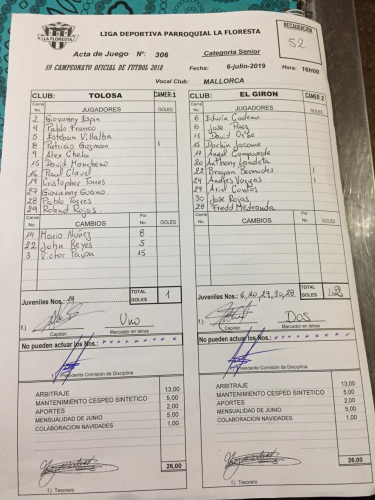 LA FLORESTA
LIGA DEPORTIVA PARROQUIAL LA FLORESTA
RECAUDACION
52
Acta de Juego Nº: 306 Categoria Senior
59 CAMPEONATO OFICIAL DE FUTBOL 2018 Fecha: 6-julio-2019 Hora: 16H00
Vocal Club: MALLORCA
CLUB: TOLOSA CAMER:1
Came No. JUGADORES GOLES
2 Giovanny Espin
4 Pablo Franco
5 Esteban Villalba
8 Patricio Guzman 1
9 Alex Chela
15 David Moncheno
16 Paul Clavel
19 Cristopher Torres
27 Giovanny Guano
28 Pablo Torres
29 Roland Rojas
Came No. CAMBIOS Por No. GOLES
14 Mario Nuñez 8
22 John Reyes 5
3 Victor Pavon 15
Juveniles Nos.: 19 TOTAL GOLES 1
1.) Uno
Capitán Marcador en letras
No pueden actuar los Nos.:
1.) Presidente Comisión de Disciplina
ARBITRAJE 13,00
MANTENIMIENTO CESPED SINTETICO 5,00
APORTES 2,00
MENSUALIDAD DE JUNIO 5,00
COLABORACION NAVIDADES 1,00
26,00
1.) Tesorero
CLUB: EL GIRON CAMER 2
Came No. JUGADORES GOLES
6 Edwin Cadena
8 Jose Paes
11 David
15 Darwin Jacome
17 Angel Campuverde
20 Anthony Landeta
22 Brayan Bermudes
24 Andjes Vargas 1
29 Ariel Cantos
30 Jose Rojas
28 Fredd Medranda
Came No. CAMBIOS Por No. GOLES
Juveniles Nos.: 6,20,29,30,28. TOTAL GOLES 2
1.) Dos
Capitán Marcador en letras
No pueden actuar los Nos.:
1.) Presidente Comisión de Disciplina
ARBITRAJE 13,00
MANTENIMIENTO CESPED SINTETICO 5,00
APORTES 2,00
MENSUALIDAD DE JUNIO 5,00
COLABORACION NAVIDADES 1,00
26,00
1.) Tesorero